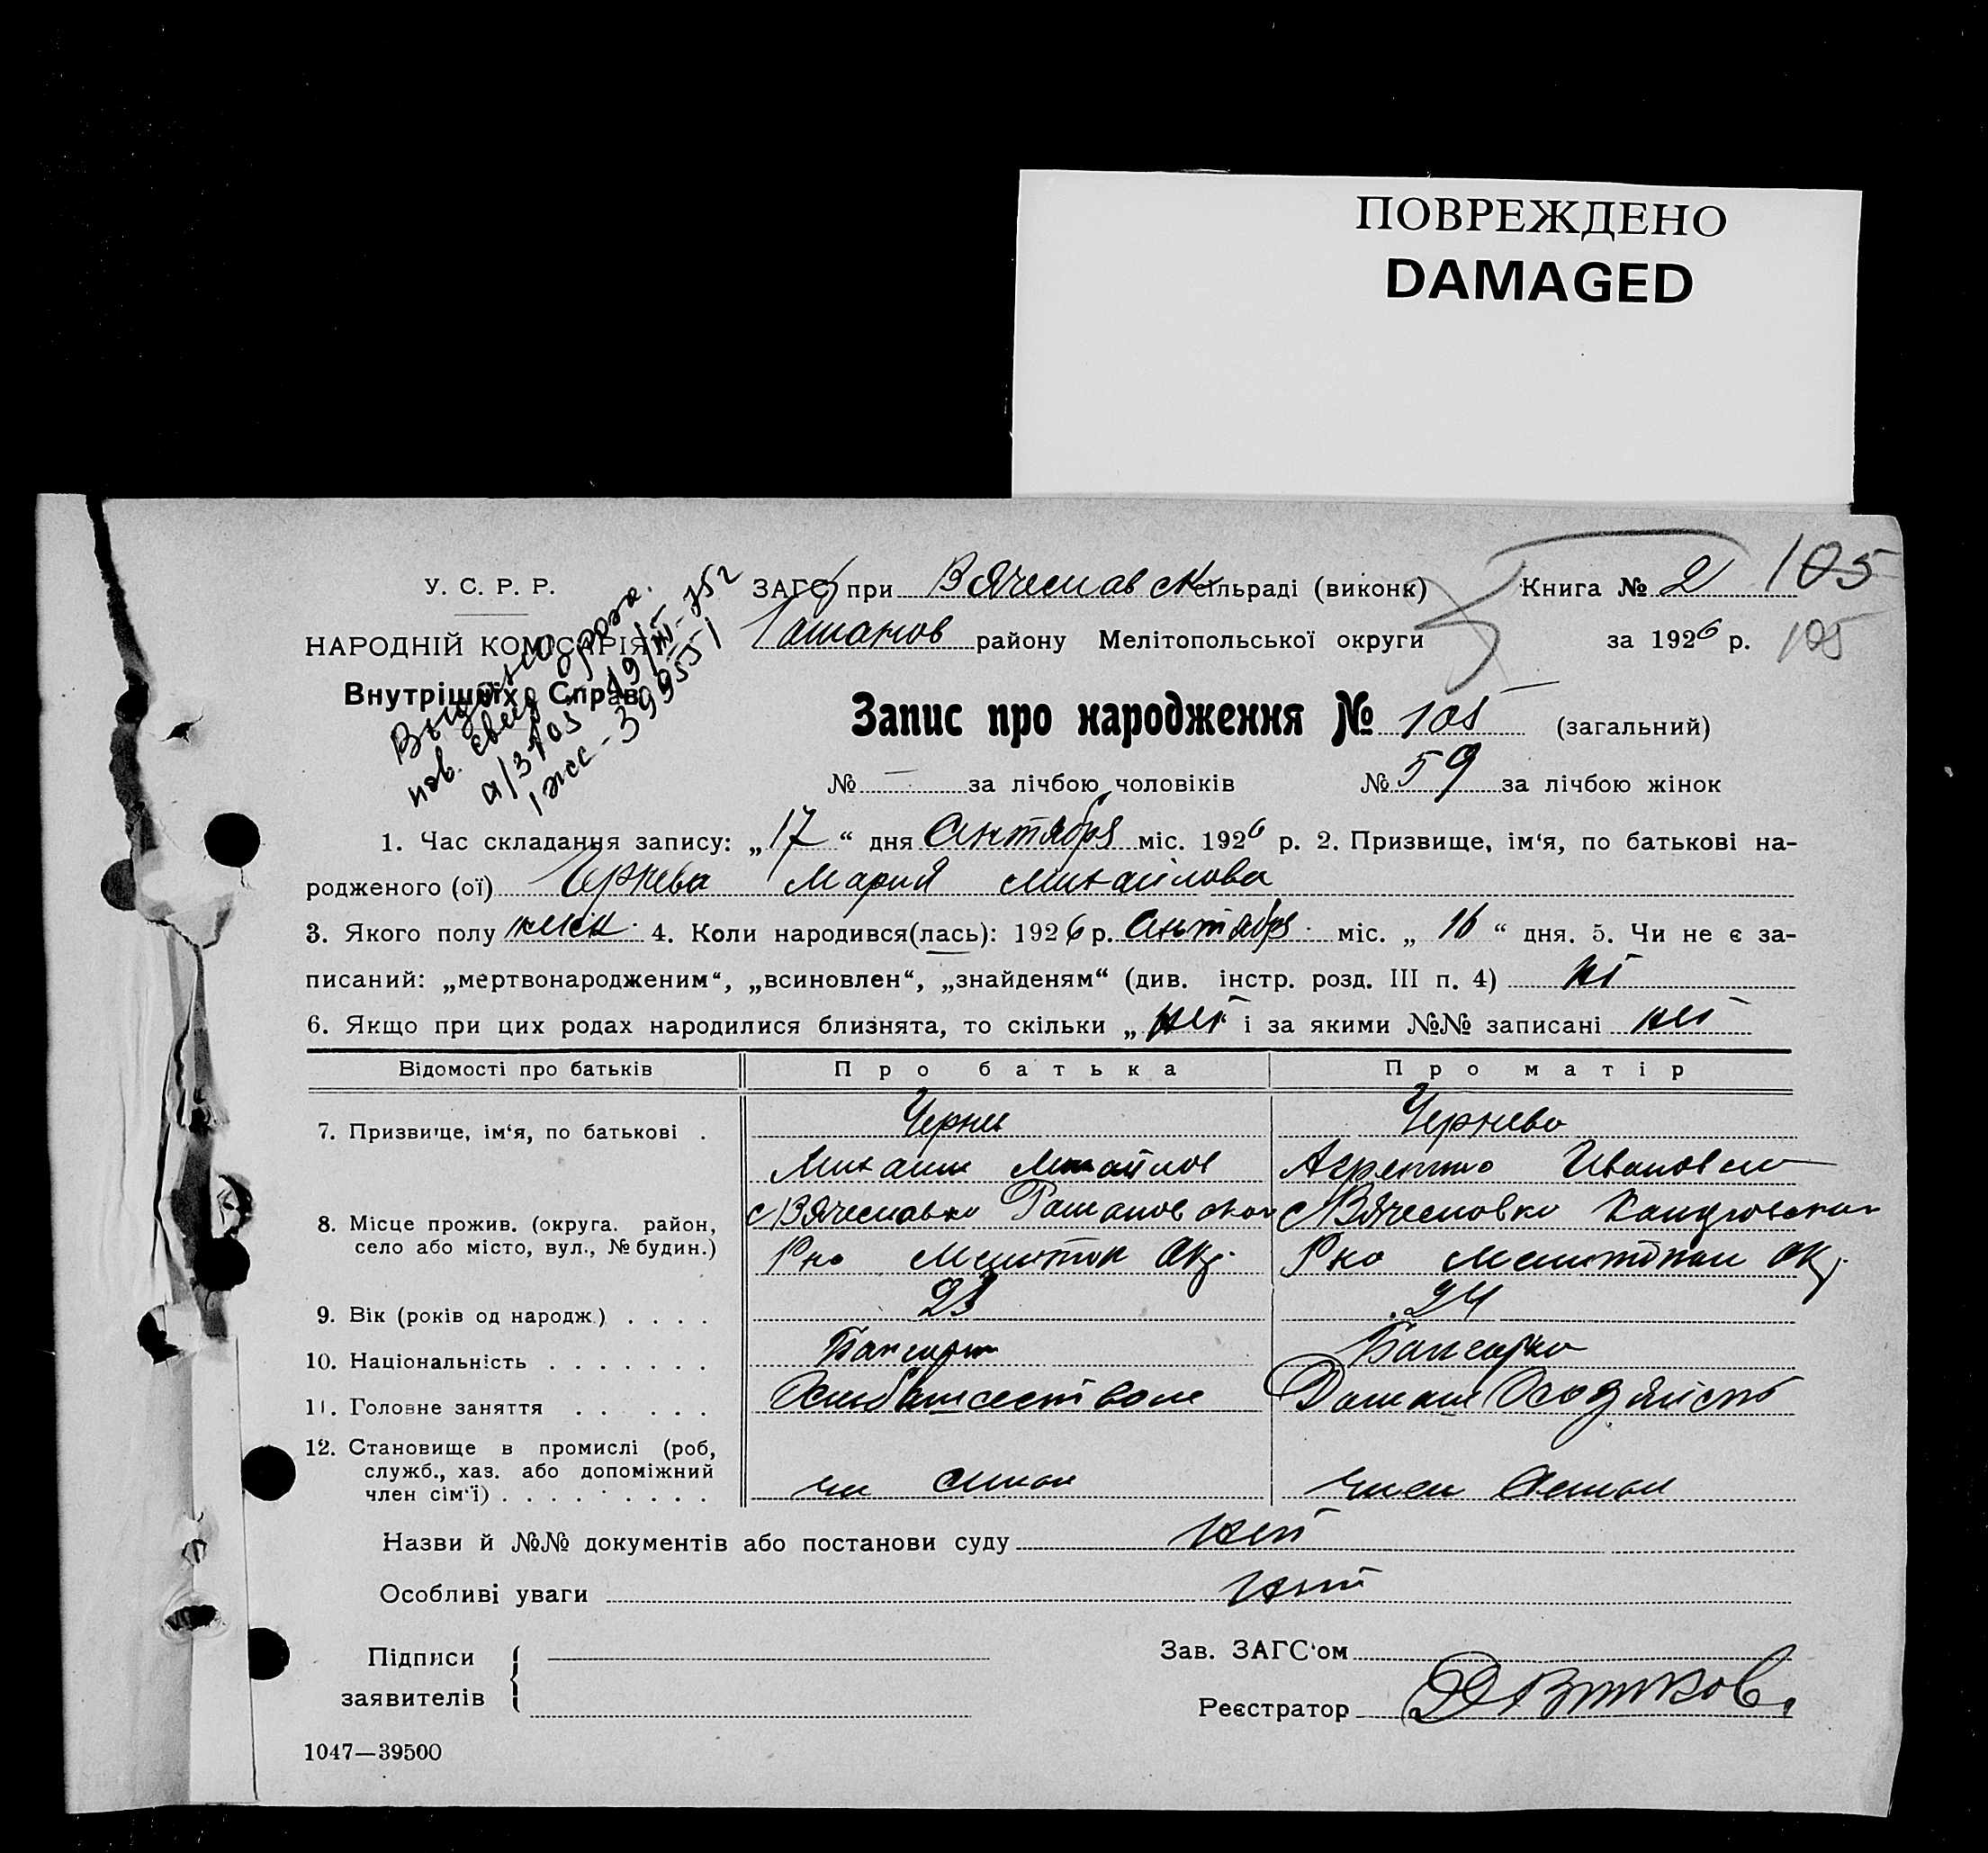 ПОВРЕЖДЕНО
DAMAGED
У. С. Р. Р.
НАРОДНІЙ КОМІСАРІЯТ
Внутрішніх Справ
Выдано
пов. свид. о рож.
19/III-752
ЗАГС при Вячеславск сільраді (виконк) Книга № 2 105
району Мелітопольської округи за 1926 р. 105
Запис про народження № 105 (загальний)
№ — за лічбою чоловіків № 59 за лічбою жінок
1. Час складання запису: „17“ дня Сентября міс. 1926 р. 2. Призвище, ім‘я, по батькові на-
родженого (ої) Чернева Мария Михайлова
3. Якого полу жен. 4. Коли народився(лась): 1926 р. Сентября міс. „ 16 “ дня. 5. Чи не є за-
писаний: „мертвонародженим“, „всиновлен“, „знайденям“ (див. інстр. розд. III п. 4)
6. Якщо при цих родах народилися близнята, то скільки „ нет і за якими №№ записані нет
Відомості про батьків Про батька Про матір
7. Призвище, ім‘я, по батькові . Чернев Чернева
Михаил Михайлов Ивановна
8. Місце прожив. (округа. район, с Вячеславка с Вячеславка
село або місто, вул., № будин.) Рна Мелитоп Окр. Рна Мелитопол Окр.
9. Вік (років од народж.) . . . . 23 24
10. Національність . . . . . . . Болгарин Болгарка
11. Головне заняття . . . . . . Хлебопашеством
12. Становище в промислі (роб,
служб., хаз. або допоміжний
член сім‘ї) . . . . . . . . .
Назви й №№ документів або постанови суду нет
Особливі уваги нет
Підписи
заявителів
Зав. ЗАГС‘ом
Реєстратор
1047—39500